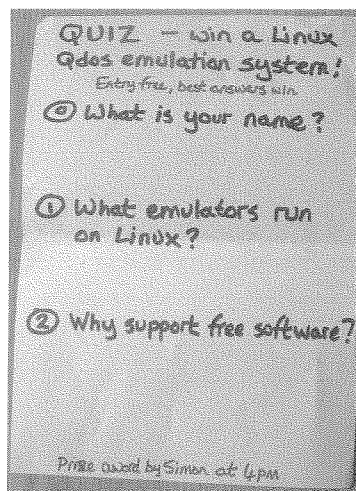 QUIZ - win a Linux
Qdos emulation system!
Entry free, best answers win
⓪ What is your name?
① What emulators run
on Linux?
② Why support free software?
Prize award by Simon at 4pm